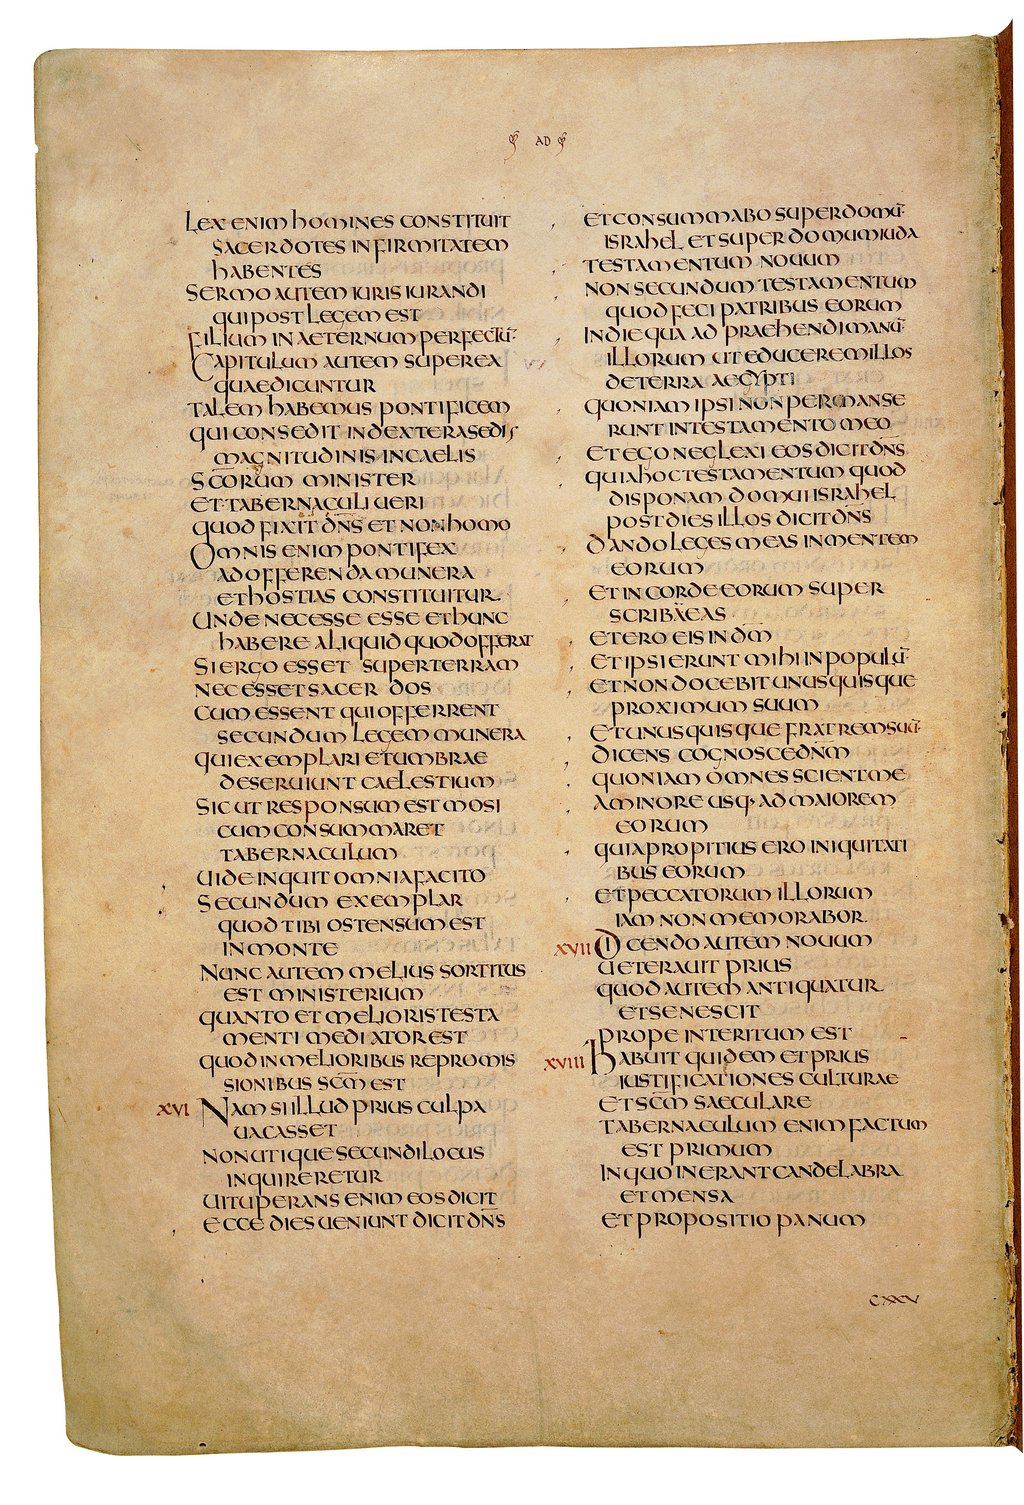 AD
LEX ENIM HOMINES CONSTITUIT
SACERDOTES INFIRMITATEM
HABENTES
SERMO AUTEM IURIS IURANDI
QUI POST LEGEM EST
FILIUM IN AETERNUM PERFECTŪ·
CAPITULUM AUTEM SUPER EA
QUAE DICUNTUR
TALEM HABEMUS PONTIFICEM
QUI CONSEDIT IN DEXTERA SEDIS
MAGNITUDINIS IN CAELIS
SC̄ORUM MINISTER
ET TABERNACULI UERI
QUOD FIXIT DN̄S ET NON HOMO
OMNIS ENIM PONTIFEX
AD OFFERENDA MUNERA
ET HOSTIAS CONSTITUITUR
UNDE NECESSE ESSE ET HUNC
HABERE ALIQUID QUOD OFFERAT
SI ERGO ESSET SUPER TERRAM
NEC ESSET SACERDOS
CUM ESSENT QUI OFFERRENT
SECUNDUM LEGEM MUNERA
QUI EXEMPLARI ET UMBRAE
DESERUIUNT CAELESTIUM
SICUT RESPONSUM EST MOSI
CUM CONSUMMARET
TABERNACULUM
UIDE INQUIT OMNIA FACITO
SECUNDUM EXEMPLAR
QUOD TIBI OSTENSUM EST
IN MONTE
NUNC AUTEM MELIUS SORTITUS
EST MINISTERIUM
QUANTO ET MELIORIS TESTA
MENTI MEDIATOR EST
QUOD IN MELIORIBUS REPROMIS
SIONIBUS SC̄M EST
XVI NAM SI ILLUD PRIUS CULPA
UACASSET
NON UTIQUE SECUNDI LOCUS
INQUIRERETUR
UITUPERANS ENIM EOS DICIT
ECCE DIES UENIUNT DICIT DN̄S
ET CONSUMMABO SUPER DOMŪ·
ISRAHEL ET SUPER DOMUM IUDA
TESTAMENTUM NOUUM
NON SECUNDUM TESTAMENTUM
QUOD FECI PATRIBUS EORUM
IN DIE QUA ADPRAEHENDI MANŪ·
ILLORUM UT EDUCEREM ILLOS
DE TERRA AEGYPTI
QUONIAM IPSI NON PERMANSE
RUNT IN TESTAMENTO MEO
ET EGO NEGLEXI EOS DICIT DN̄S
QUIA HOC TESTAMENTUM QUOD
DISPONAM DOMUI ISRAHEL
POST DIES ILLOS DICIT DN̄S
DANDO LEGES MEAS IN MENTEM
EORUM
ET IN CORDE EORUM SUPER
SCRIBAEAS
ET ERO EIS IN DM̄
ET IPSI ERUNT MIHI IN POPULŪ·
ET NON DOCEBIT UNUSQUISQUE
PROXIMUM SUUM
ET UNUSQUISQUE FRATREM SUŪ·
DICENS COGNOSCE DN̄M
QUONIAM OMNES SCIENT ME
A MINORE USQ· AD MAIOREM
EORUM
QUIA PROPITIUS ERO INIQUITATI
BUS EORUM
ET PECCATORUM ILLORUM
IAM NON MEMORABOR
XVII DICENDO AUTEM NOUUM
UETERAUIT PRIUS
QUOD AUTEM ANTIQUATUR
ET SENESCIT
PROPE INTERITUM EST
XVIII HABUIT QUIDEM ET PRIUS
IUSTIFICATIONES CULTURAE
ET SC̄M SAECULARE
TABERNACULUM ENIM FACTUM
EST PRIMUM
IN QUO INERANT CANDELABRA
ET MENSA
ET PROPOSITIO PANUM
CXXV